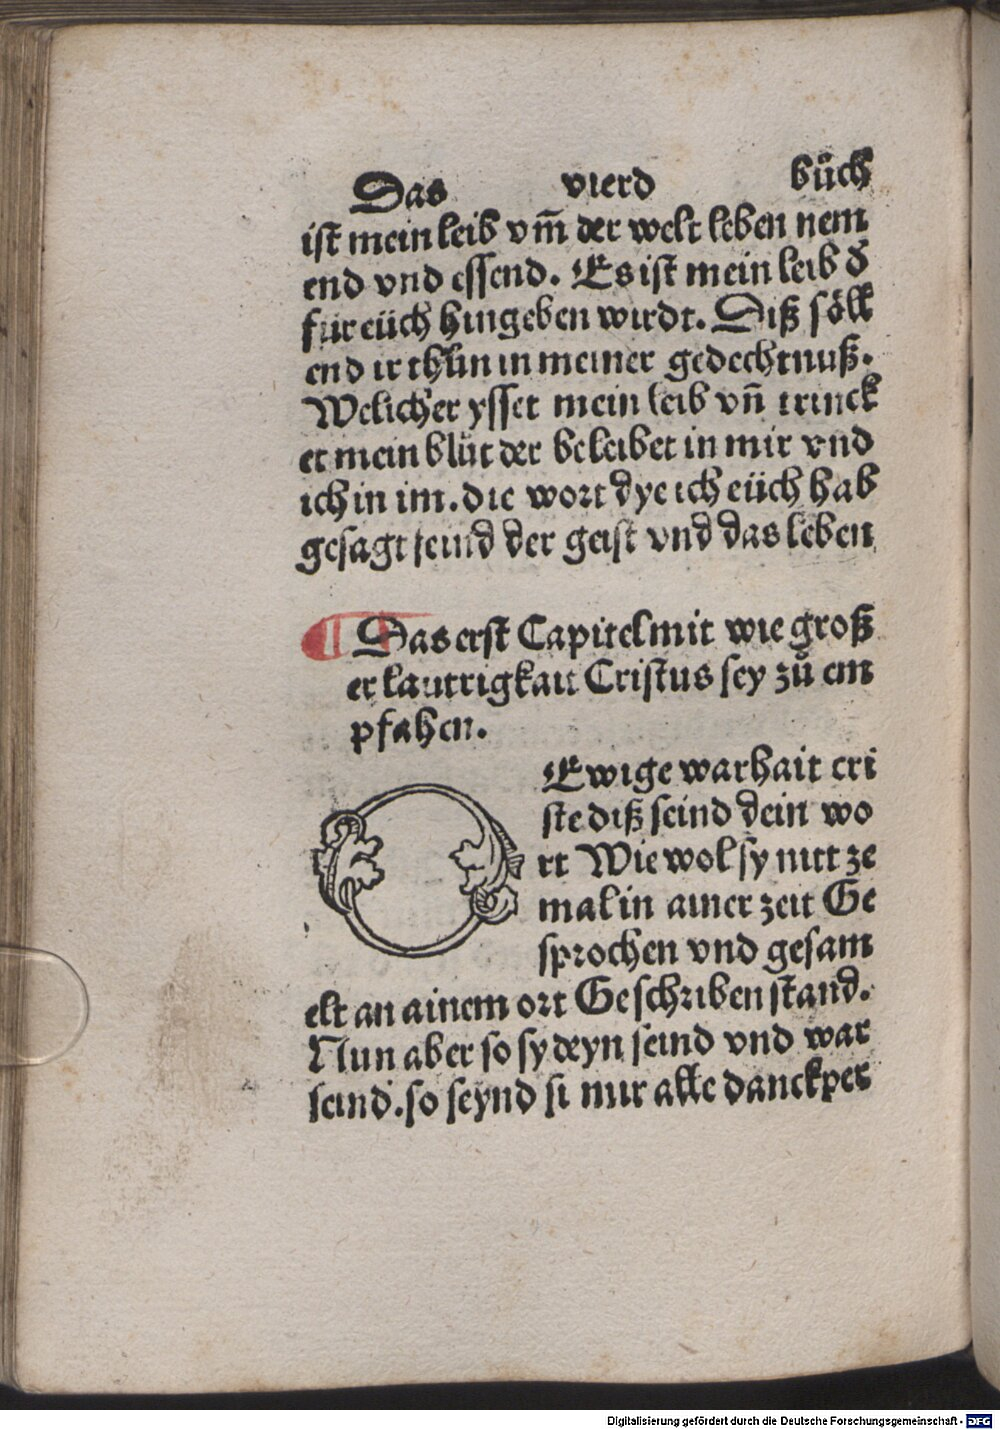 Das vierd bůch
ist mein leib vm̄ der welt leben nem
end vnd essend. Es ist mein leib d̕
für eüch hingeben wirdt. Diß söll
end ir thůn in meiner gedechtnuß.
Welicher ysset mein leib vn̄ trinck
et mein blůt der beleibet in mir vnd
ich in im. die wort dye ich eüch hab
gesagt seind der geist vnd das leben
¶ Das erst Capitel mit wie groß
er lautrigkait Cristus sey zů em
pfahen.
O Ewige warhait cri
ste diß seind dein wo
rt Wie wol sy nitt ze
mal in ainer zeit Ge
sprochen vnd gesam
elt an ainem ort Geschriben stand.
Nun aber so sy deyn seind vnd war
seind. so seynd si mir alle danckper
Digitalisierung gefördert durch die Deutsche Forschungsgemeinschaft - DFG